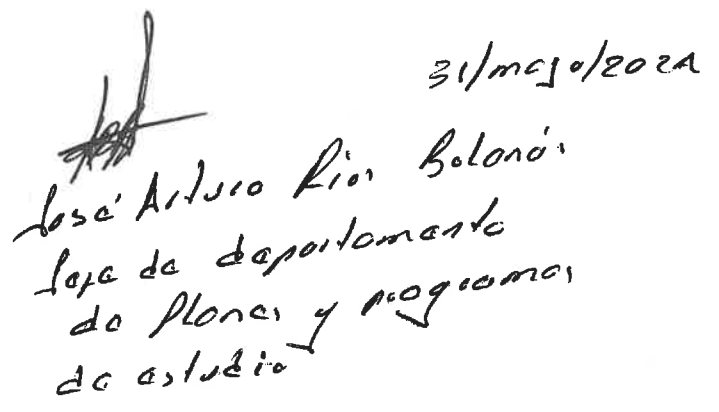 31/mayo/2021
José Arturo Ríos Bolonós
Jefe de departamento
de Planes y programas
de estudio